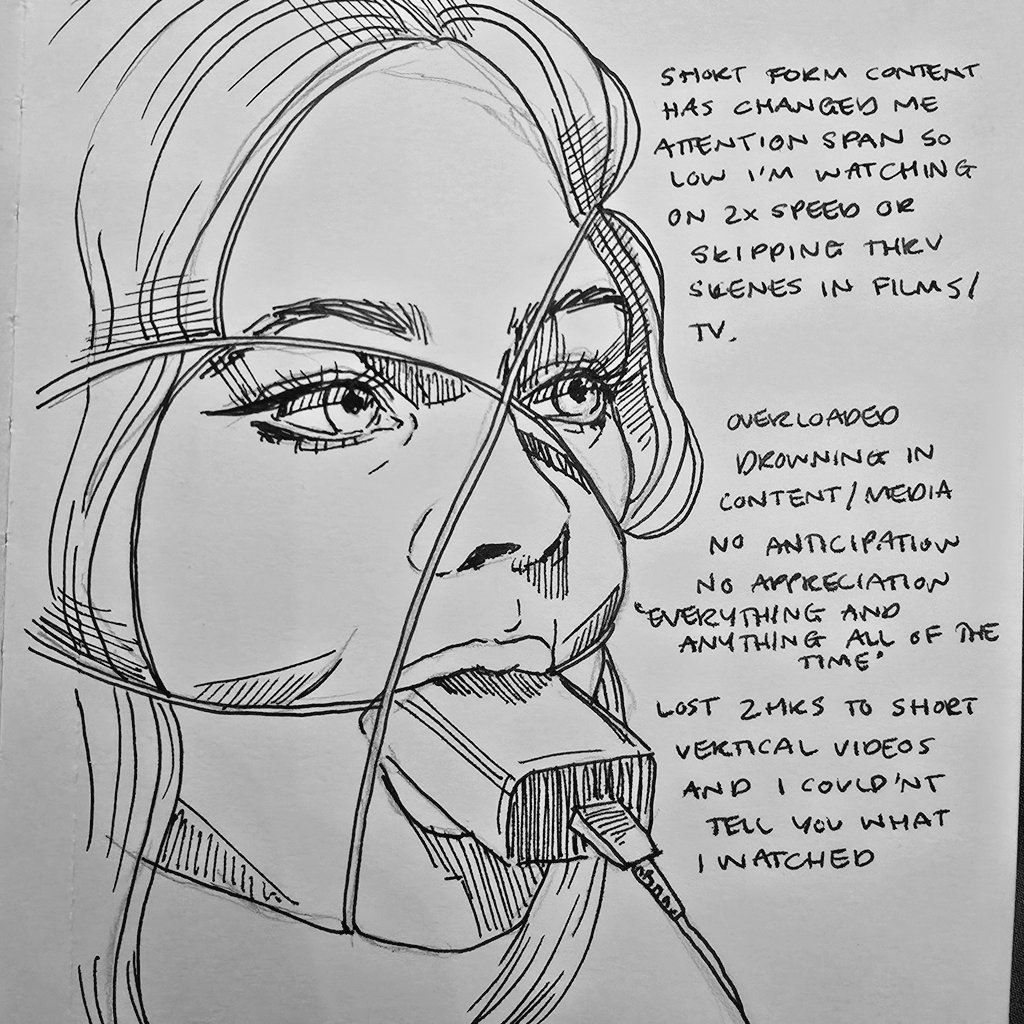 SHORT FORM CONTENT
HAS CHANGED ME
ATTENTION SPAN SO
LOW I'M WATCHING
ON 2X SPEED OR
SKIPPING THRU
SKENES IN FILMS/
TV.
OVERLOADED
DROWNING IN
CONTENT/MEDIA
NO ANTICIPATION
NO APPRECIATION
"EVERYTHING AND
ANYTHING ALL OF THE
TIME"
LOST 2HRS TO SHORT
VERTICAL VIDEOS
AND I COULD'NT
TELL YOU WHAT
I WATCHED